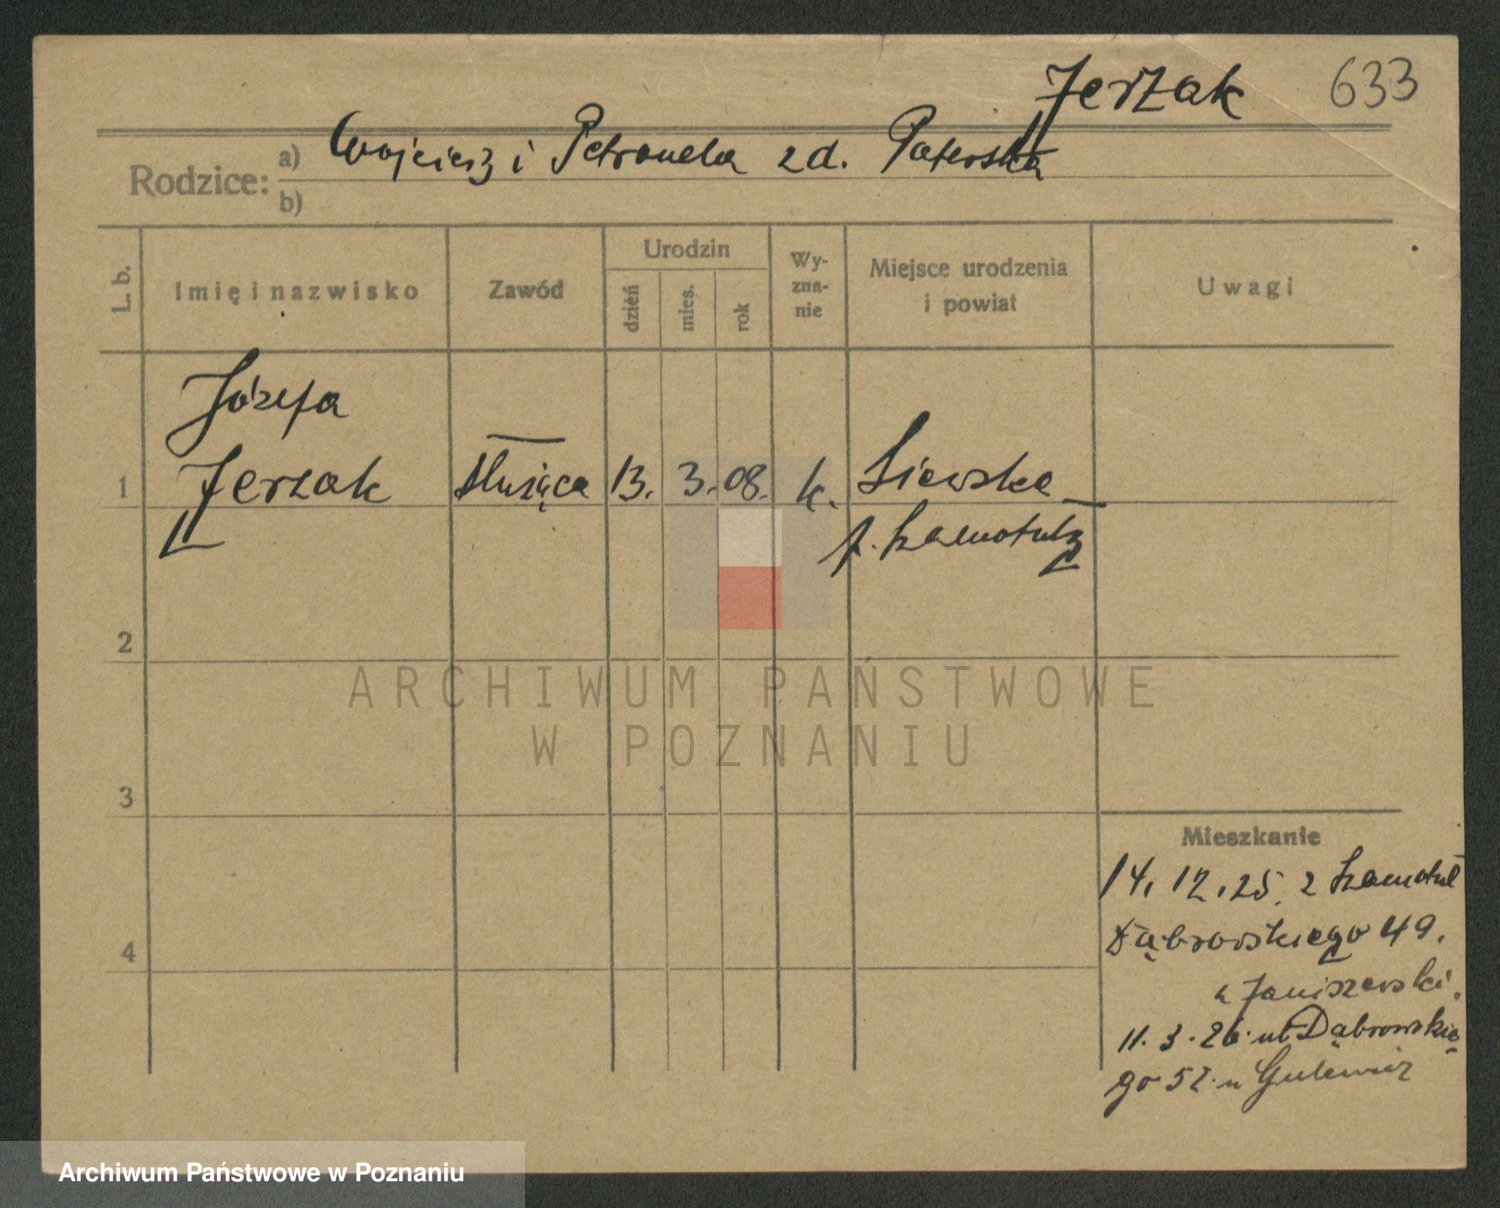 Jerzak 633
Rodzice: a) Wojciesz i Petronela zd. Paterska
b)
L. b. Imię i nazwisko Zawód Urodzin dzień mies. rok Wy-zna-nie Miejsce urodzenia i powiat Uwagi
Józefa
1 Jerzak służąca 13. 3. 08. k.
p. Szamotuły
2
ARCHIWUM PAŃSTWOWE
W POZNANIU
3
Mieszkanie
14. 12. 25. z Szamotuł
4 Dąbrowskiego 49.
u Janiszewski.
11. 3. 26. ul. Dąbrowskie
go 52. u
Archiwum Państwowe w Poznaniu